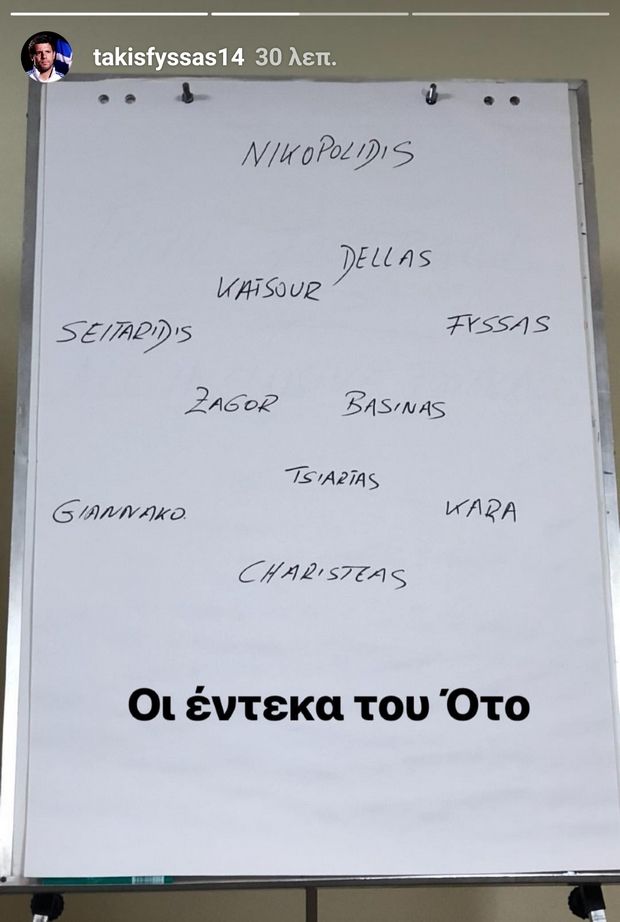 takisfyssas14 30 λεπ.
NIKOPOLIDIS
DELLAS
KAISOUR
SEITARIDIS FYSSAS
ZAGOR BASINAS
TSIARTAS
GIANNAKO. KARA
CHARISTEAS
Οι έντεκα του Ότο